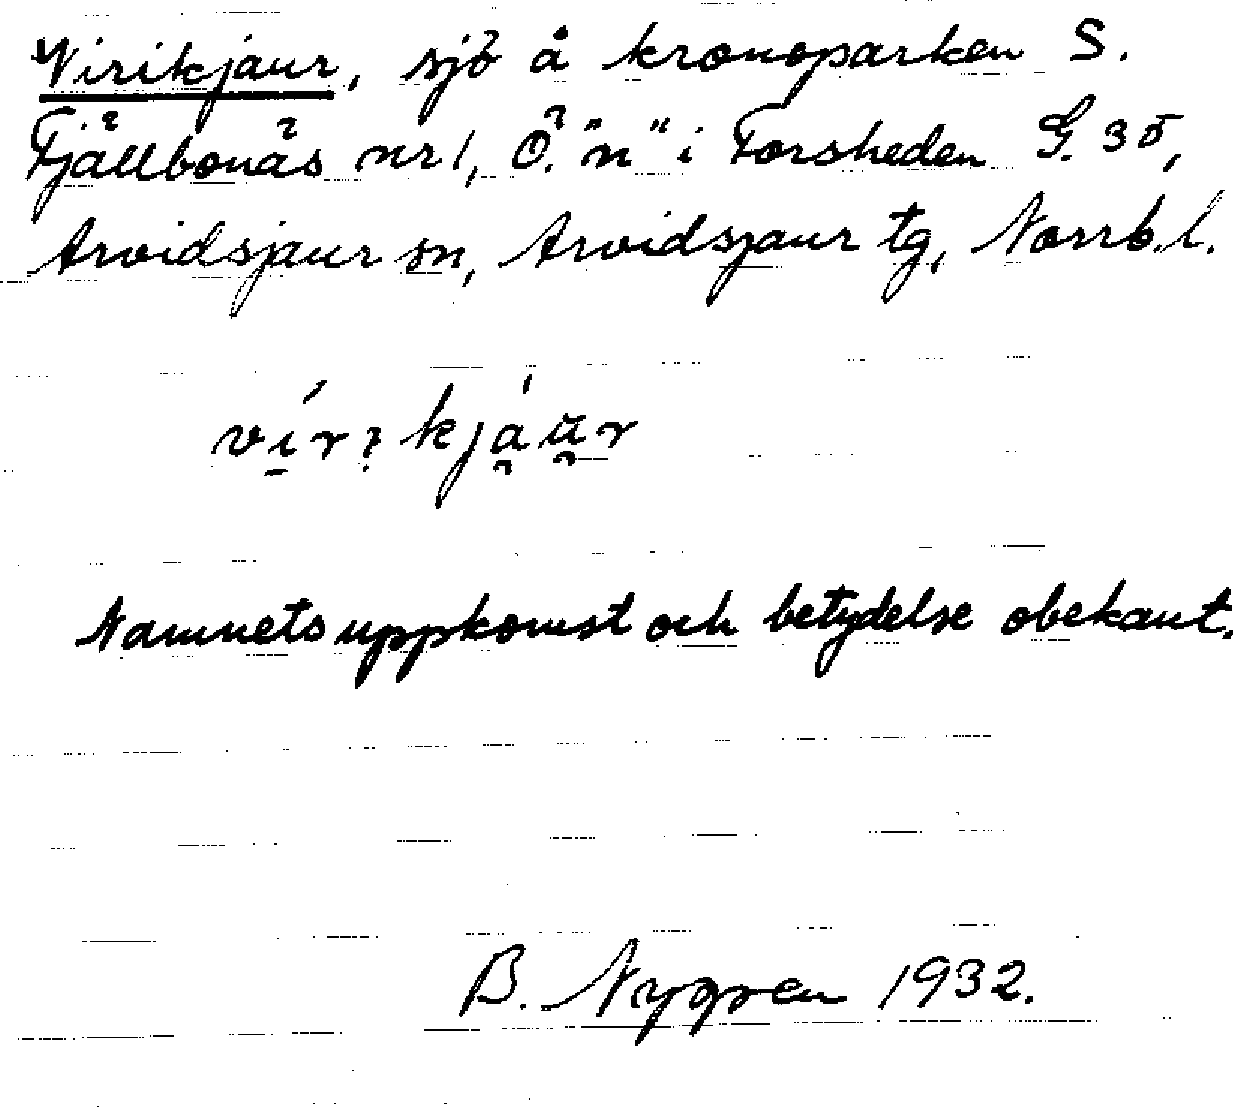 Virikjaur, sjö å kronoparken S.
Fjällbonäs nr 1, Ö. "n" i Forsheden G. 35,
Arvidsjaur sn, Arvidsjaur tg, Norrb. l.
Namnets uppkomst och betydelse obekant.
B. Nygren 1932.